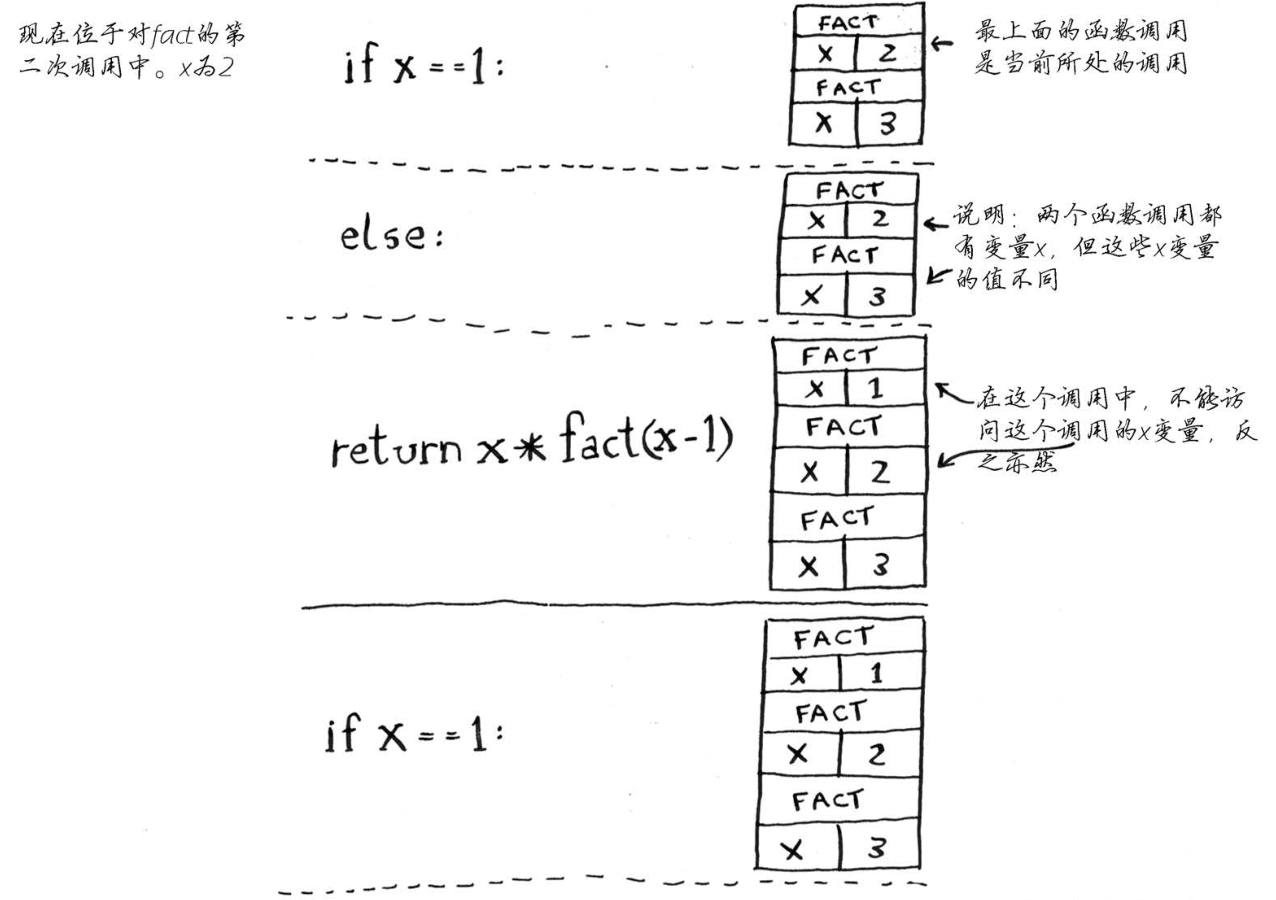 现在位于对fact的第
二次调用中。x为2
if x==1:
FACT
X 2
FACT
X 3
最上面的函数调用
是当前所处的调用
else:
FACT
X 2
FACT
X 3
说明：两个函数调用都
有变量x，但这些x变量
的值不同
return x*fact(x-1)
FACT
X 1
FACT
X 2
FACT
X 3
在这个调用中，不能访
问这个调用的x变量，反
之亦然
if x==1:
FACT
X 1
FACT
X 2
FACT
X 3